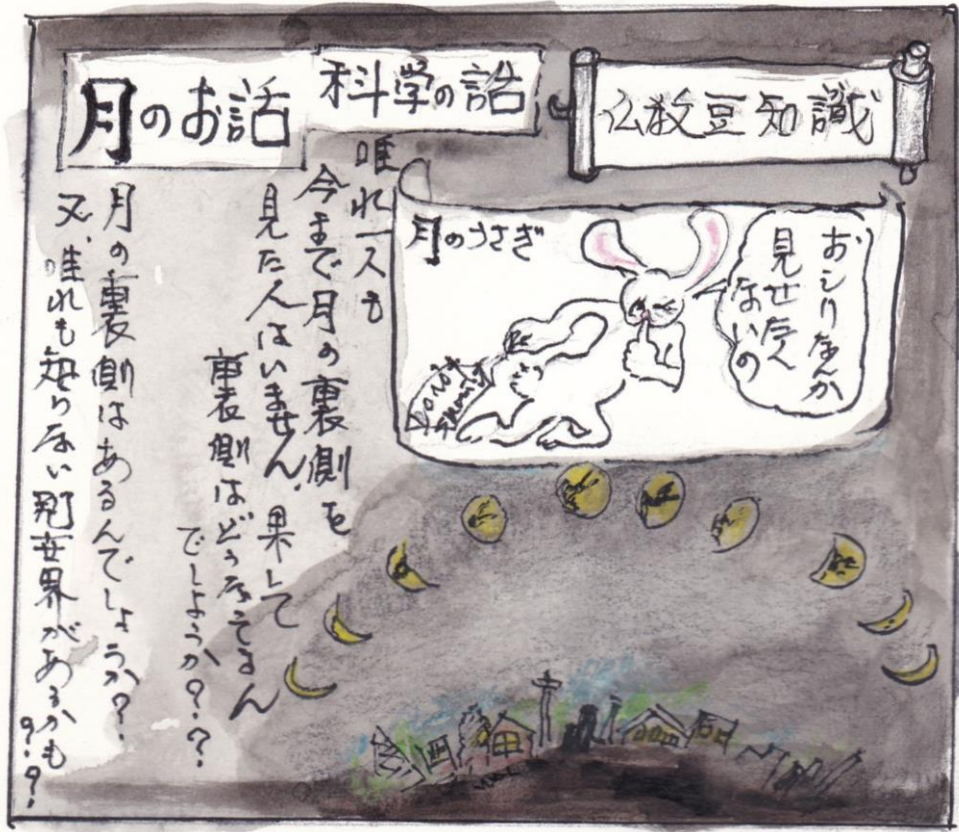 仏教豆知識
科学の話
月のお話
おしりなんか
見せ
ないの
月のうさぎ
Donot
唯れ一人も
今まで月の裏側を
見た人はいません、果して
裏側はどうなってるん
でしょうか??
月の裏側はあるんでしょうか?
又、唯れも知らない別世界があるかも??